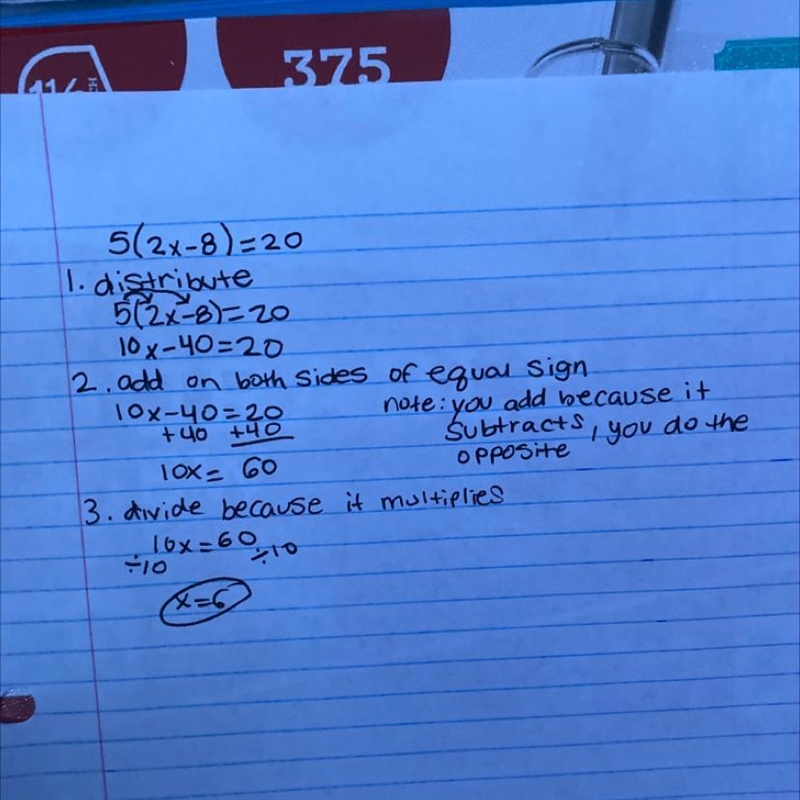 11/
375
5(2x-8)=20
1. distribute
5(2x-8)=20
10x-40=20
2. add on both sides of equal sign
10x-40=20
+40 +40
10x= 60
note: you add because it
subtracts, you do the
opposite
3. divide because it multiplies
10x=60
÷10 ÷10
x=6